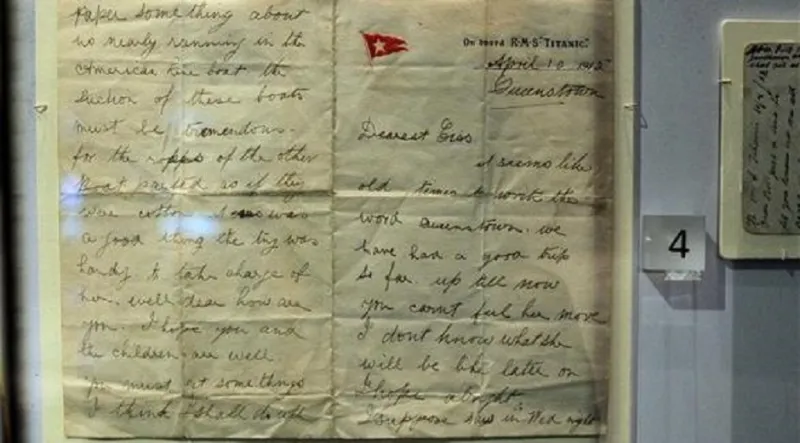 On board R.M.S "TITANIC".
April 10 1912
Queenstown
Dearest
it seems like
old times to write the
word Queenstown. we
have had a good trip
so far. up till now
you carnt feel her move
I dont know what she
will be like later on
I hope alright
I suppose saw in Wed night
paper something about
us nearly running in the
American line boat the
Suction of these boats
must be tremendous.
for the ropes of the other
Boat parted as if they
were cotton it was
a good thing the tug was
handy to take charge of
her. well dear how are
you. I hope you and
the children are well.
you must get somethings
I think I shall do well
4